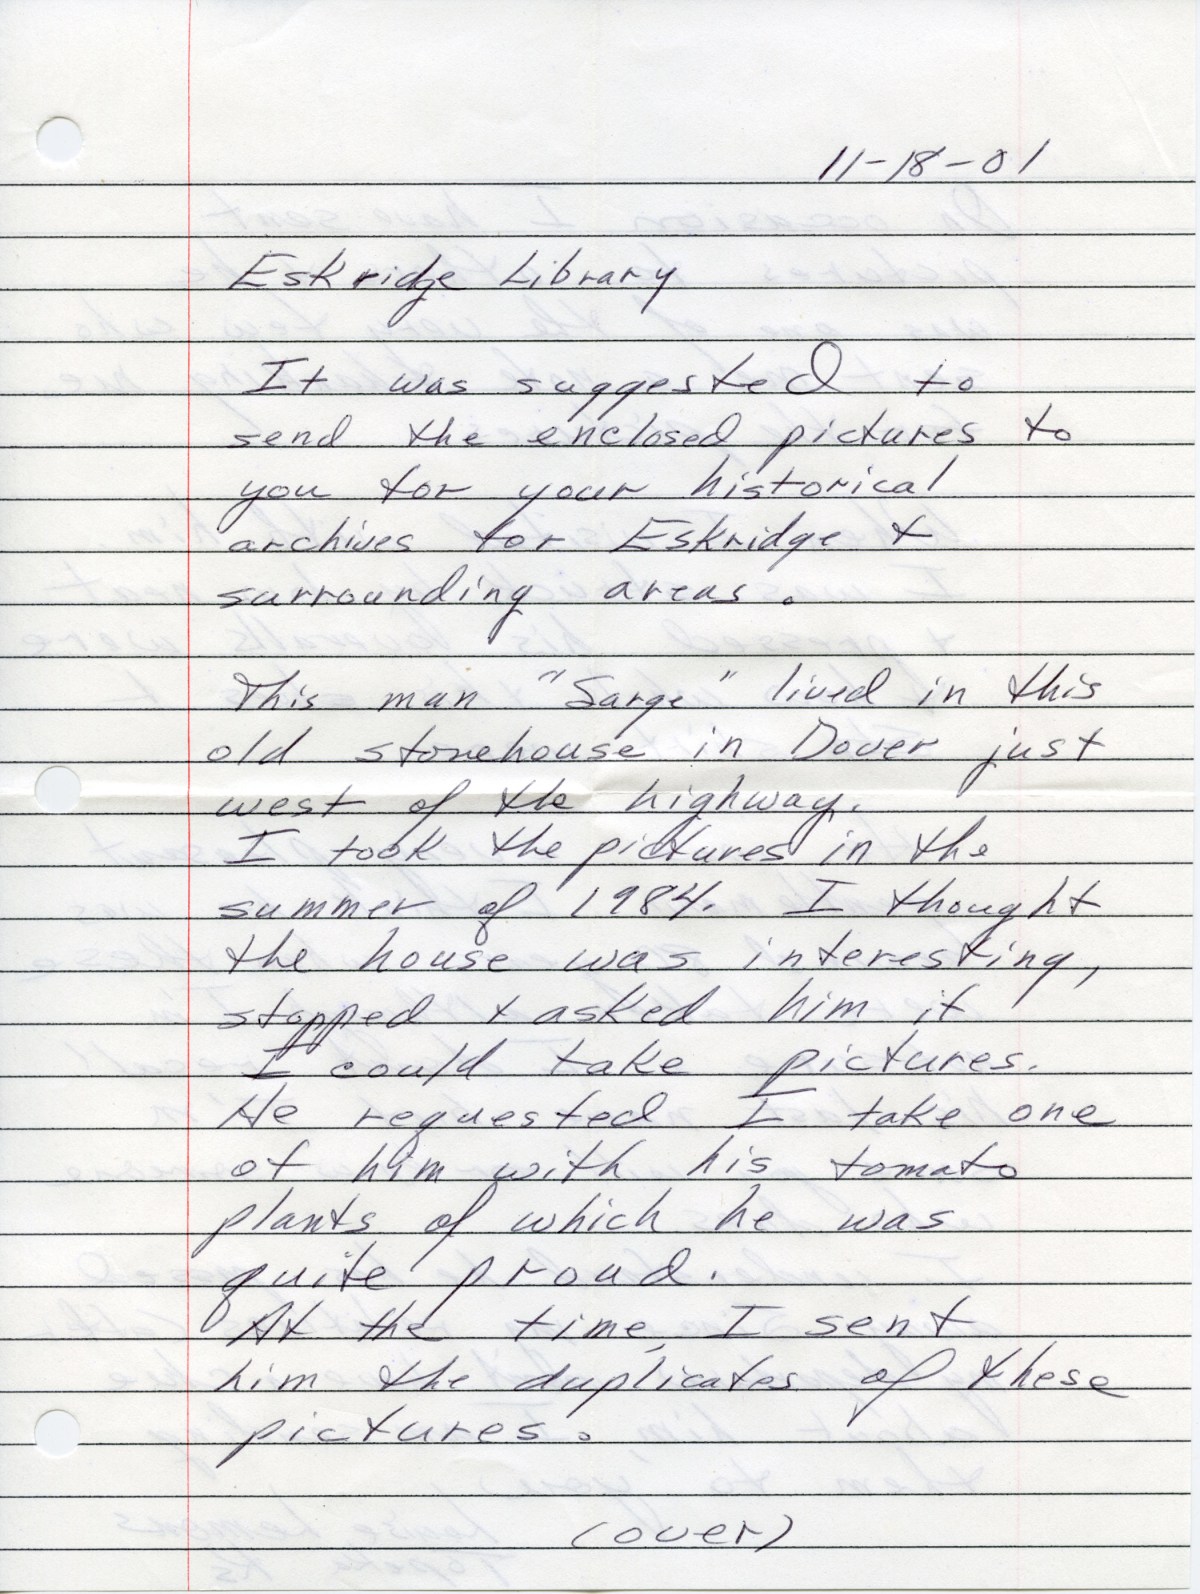 11-18-01
Eskridge Library
It was suggested to
send the enclosed pictures to
you for your historical
archives for Eskridge &
surrounding areas.
This man "Sarge" lived in this
old stonehouse in Dover just
west of the highway.
I took the pictures in the
summer of 1984. I thought
the house was interesting,
stopped & asked him if
I could take pictures.
He requested I take one
of him with his tomato
plants of which he was
quite proud.
At the time I sent
him the duplicates of these
pictures.
(over)